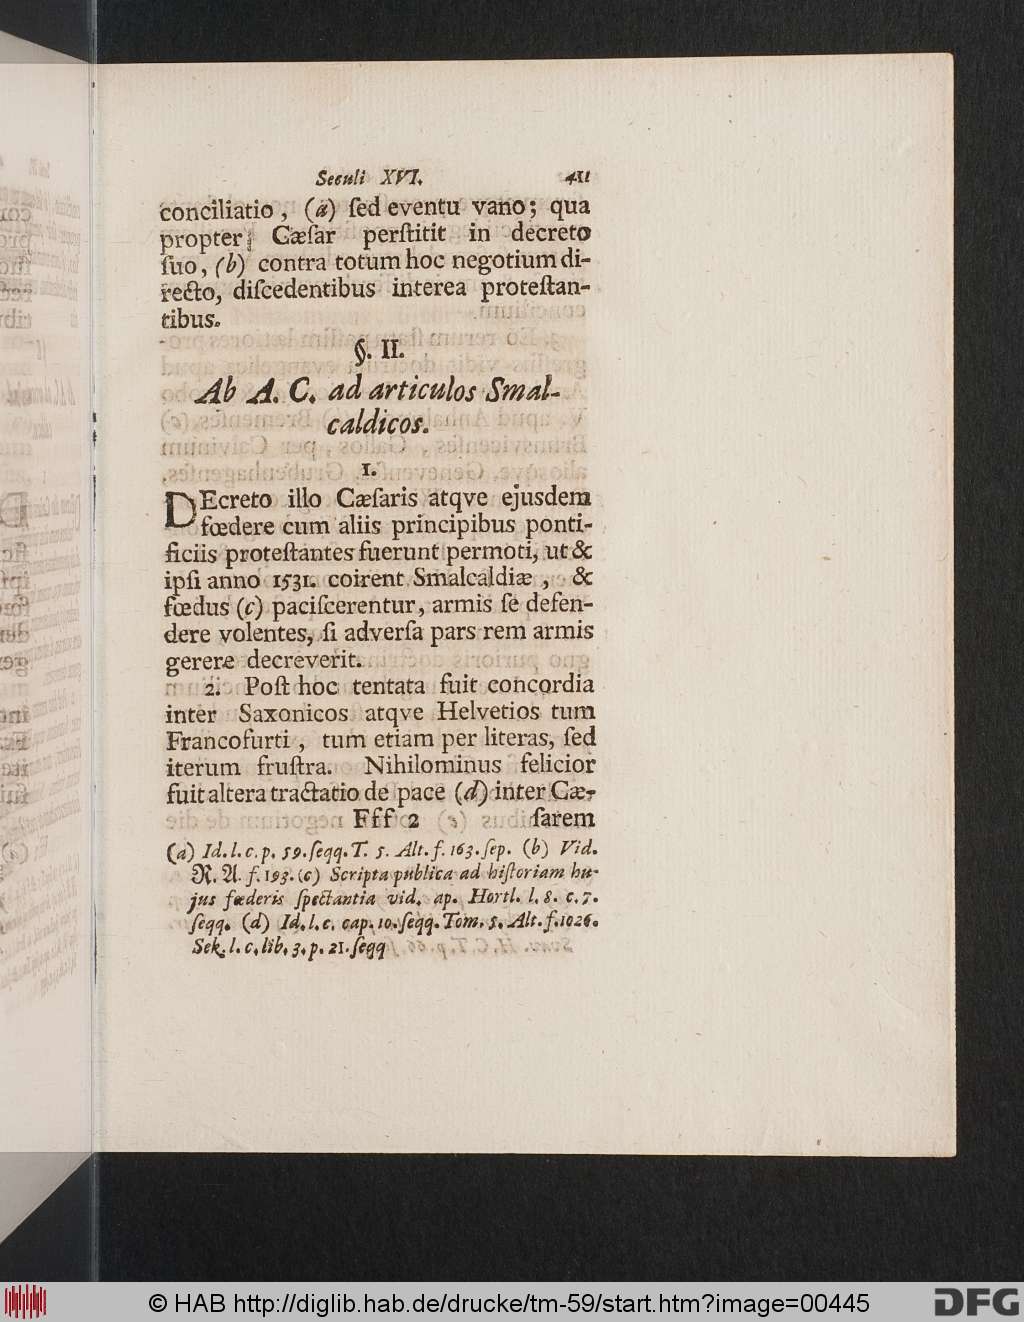 Seculi XVI. 411
conciliatio, (a) ſed eventu vano; qua
propter Cæſar perſtitit in decreto
ſuo, (b) contra totum hoc negotium di-
recto, diſcedentibus interea proteſtan-
tibus.
§. II.
Ab A. C. ad articulos Smal-
caldicos.
1.
DEcreto illo Cæſaris atqve ejusdem
fœdere cum aliis principibus ponti-
ficiis proteſtantes fuerunt permoti, ut &
ipſi anno 1531. coirent Smalcaldiæ, &
fœdus (c) paciſcerentur, armis ſe defen-
dere volentes, ſi adverſa pars rem armis
gerere decreverit.
2. Poſt hoc tentata fuit concordia
inter Saxonicos atqve Helvetios tum
Francofurti, tum etiam per literas, ſed
iterum fruſtra. Nihilominus felicior
fuit altera tractatio de pace (d) inter Cæ-
Fff 2 ſarem
(a) Id. l. c. p. 59. ſeqq. T. 5. Alt. f. 163. ſep. (b) Vid.
R. A. f. 193. (c) Scripta publica ad hiſtoriam hu-
jus fœderis ſpectantia vid. ap. Hortl. l. 8. c. 7.
ſeqq. (d) Id. l. c. cap. 10. ſeqq. Tom. 5. Alt. f. 1026.
Sek. l. c. lib. 3. p. 21. ſeqq
© HAB http://diglib.hab.de/drucke/tm-59/start.htm?image=00445
DFG